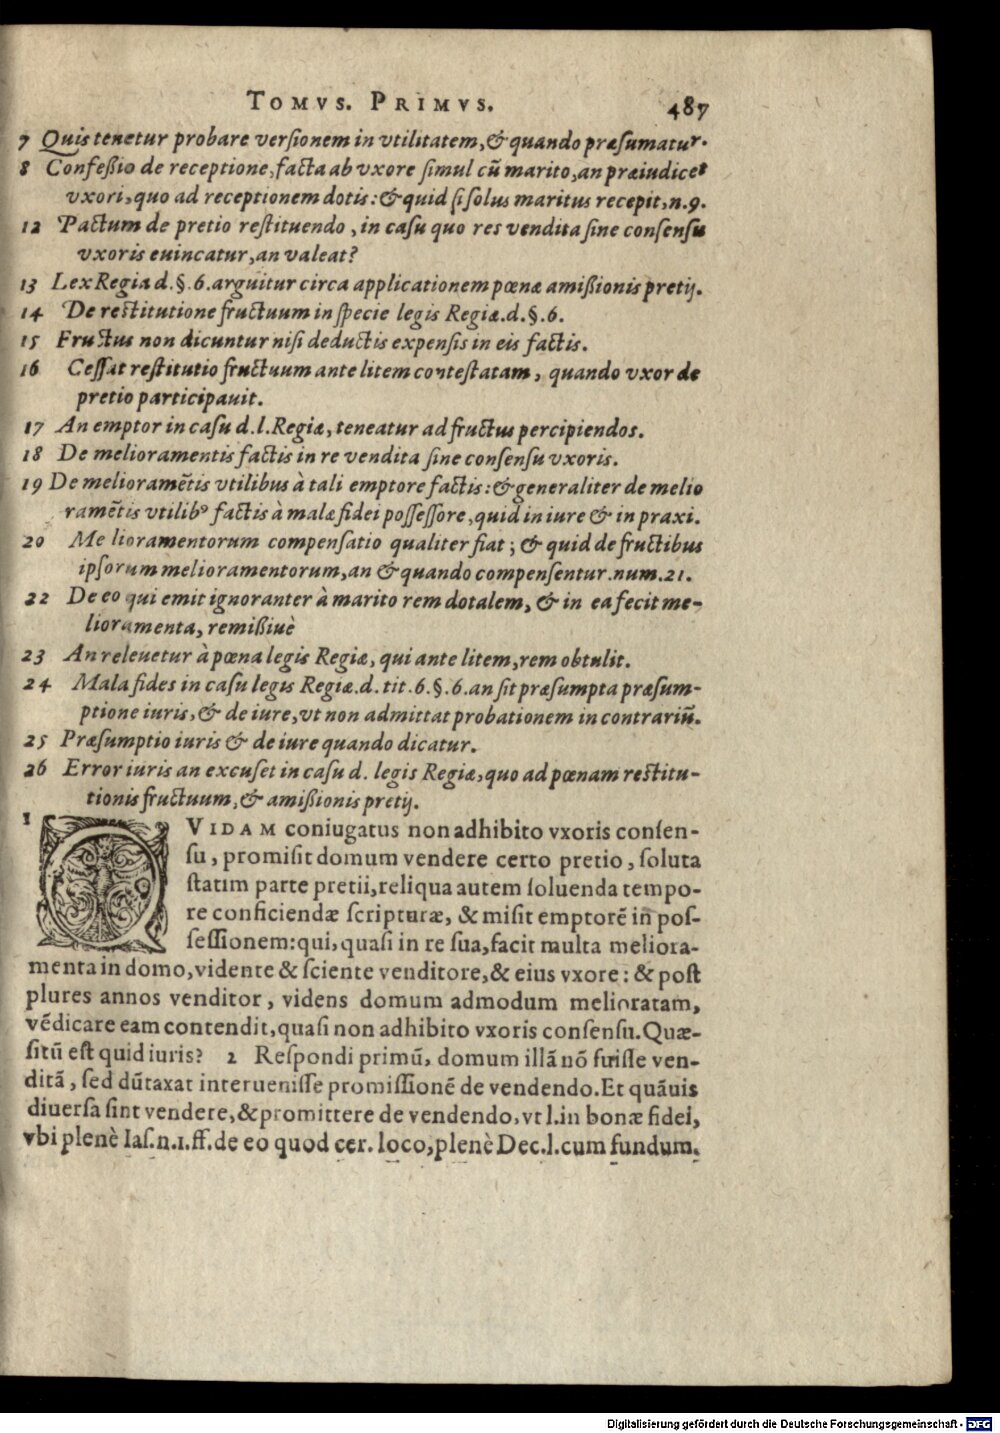 TOMVS. PRIMVS. 487
7 Quis tenetur probare verſionem in vtilitatem, & quando præſumatur.
8 Confeßio de receptione, facta ab vxore ſimul cũ marito, an præiudicet
vxori, quo ad receptionem dotis: & quid ſi ſolus maritus recepit, n.9.
12 Pactum de pretio reſtituendo, in caſu quo res vendita ſine conſenſu
vxoris euincatur, an valeat?
13 Lex Regia d.§.6. arguitur circa applicationem pœnæ amißionis pretij.
14 De reſtitutione fructuum in ſpecie legis Regiæ.d.§.6.
15 Fructus non dicuntur niſi deductis expenſis in eis factis.
16 Ceſſat reſtitutio fructuum ante litem conteſtatam, quando vxor de
pretio participauit.
17 An emptor in caſu d.l. Regiæ, teneatur ad fructus percipiendos.
18 De melioramentis factis in re vendita ſine conſenſu vxoris.
19 De melioramẽtis vtilibus à tali emptore factis: & generaliter de melio
ramẽtis vtilibꝰ factis à malæ fidei poſſeſſore, quid in iure & in praxi.
20 Me lioramentorum compenſatio qualiter fiat; & quid de fructibus
ipſorum melioramentorum, an & quando compenſentur.num.21.
22 De eo qui emit ignoranter à marito rem dotalem, & in ea fecit me-
lioramenta, remißiuè
23 An releuetur à pœna legis Regiæ, qui ante litem, rem obtulit.
24 Mala fides in caſu legis Regiæ.d.tit.6.§.6. an ſit præſumpta præſum-
ptione iuris, & de iure, vt non admittat probationem in contrariũ.
25 Præſumptio iuris & de iure quando dicatur.
26 Error iuris an excuſet in caſu d. legis Regiæ, quo ad pœnam reſtitu-
tionis fructuum, & amißionis pretij.
1 QVIDAM coniugatus non adhibito vxoris conſen-
ſu, promiſit domum vendere certo pretio, ſoluta
ſtatim parte pretii, reliqua autem ſoluenda tempo-
re conficiendæ ſcripturæ, & miſit emptorẽ in poſ-
ſeſſionem: qui, quaſi in re ſua, facit multa meliora-
menta in domo, vidente & ſciente venditore, & eius vxore: & poſt
plures annos venditor, videns domum admodum melioratam,
vẽdicare eam contendit, quaſi non adhibito vxoris conſenſu. Quæ-
ſitũ eſt quid iuris? 2 Reſpondi primũ, domum illã nõ fuiſſe ven-
ditã, ſed dũtaxat interueniſſe promiſſionẽ de vendendo. Et quãuis
diuerſa ſint vendere, & promittere de vendendo, vt l.in bonæ fidei,
vbi plenè Iaſ.n.1.ff. de eo quod cer. loco, plenè Dec.l.cum fundum.
Digitalisierung gefördert durch die Deutsche Forschungsgemeinschaft - DFG